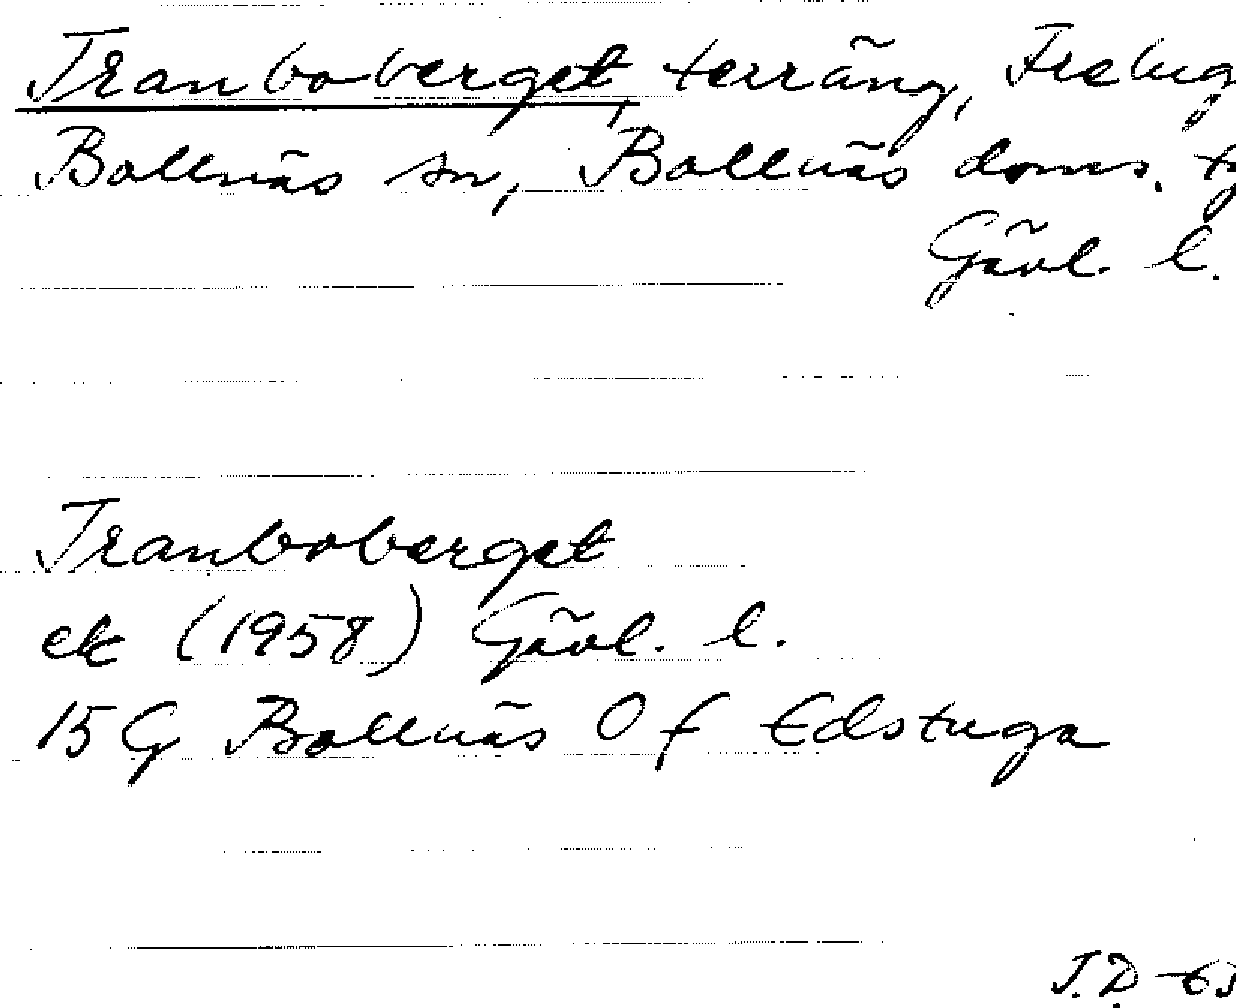 Tranboberget, terräng,
Bollnäs sn, Bollnäs doms.
Gävl. l.
Tranboberget
ek (1958) Gävl. l.
15 G Bollnäs O f Edstuga